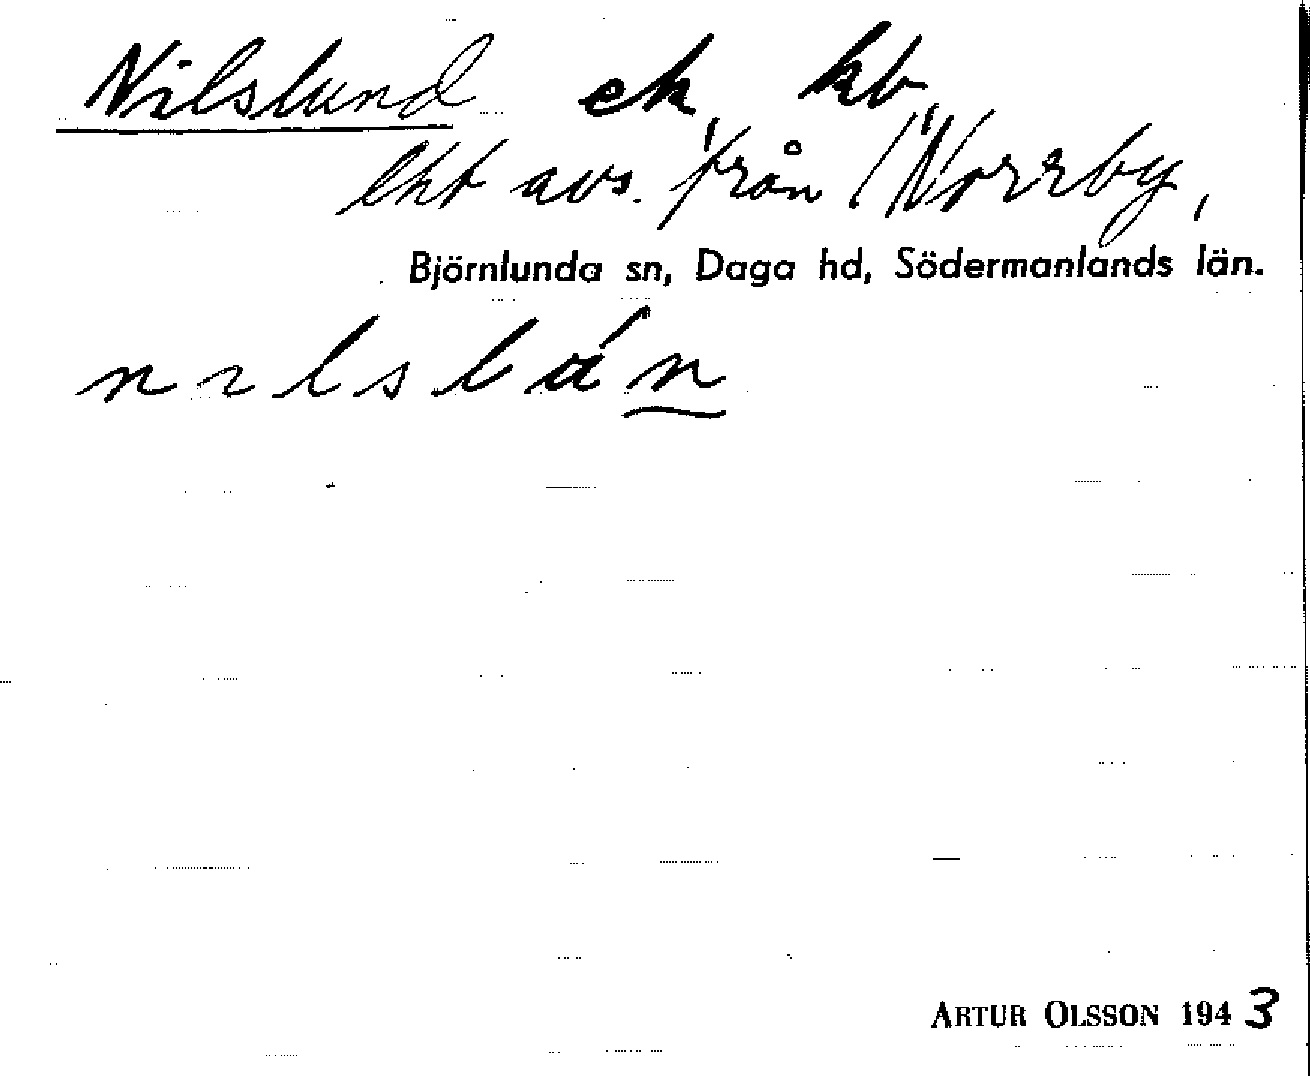 Nilslund ek kb
lht avs. från Norrby,
Björnlunda sn, Daga hd, Södermanlands län.
nılslún
ARTUR OLSSON 1943